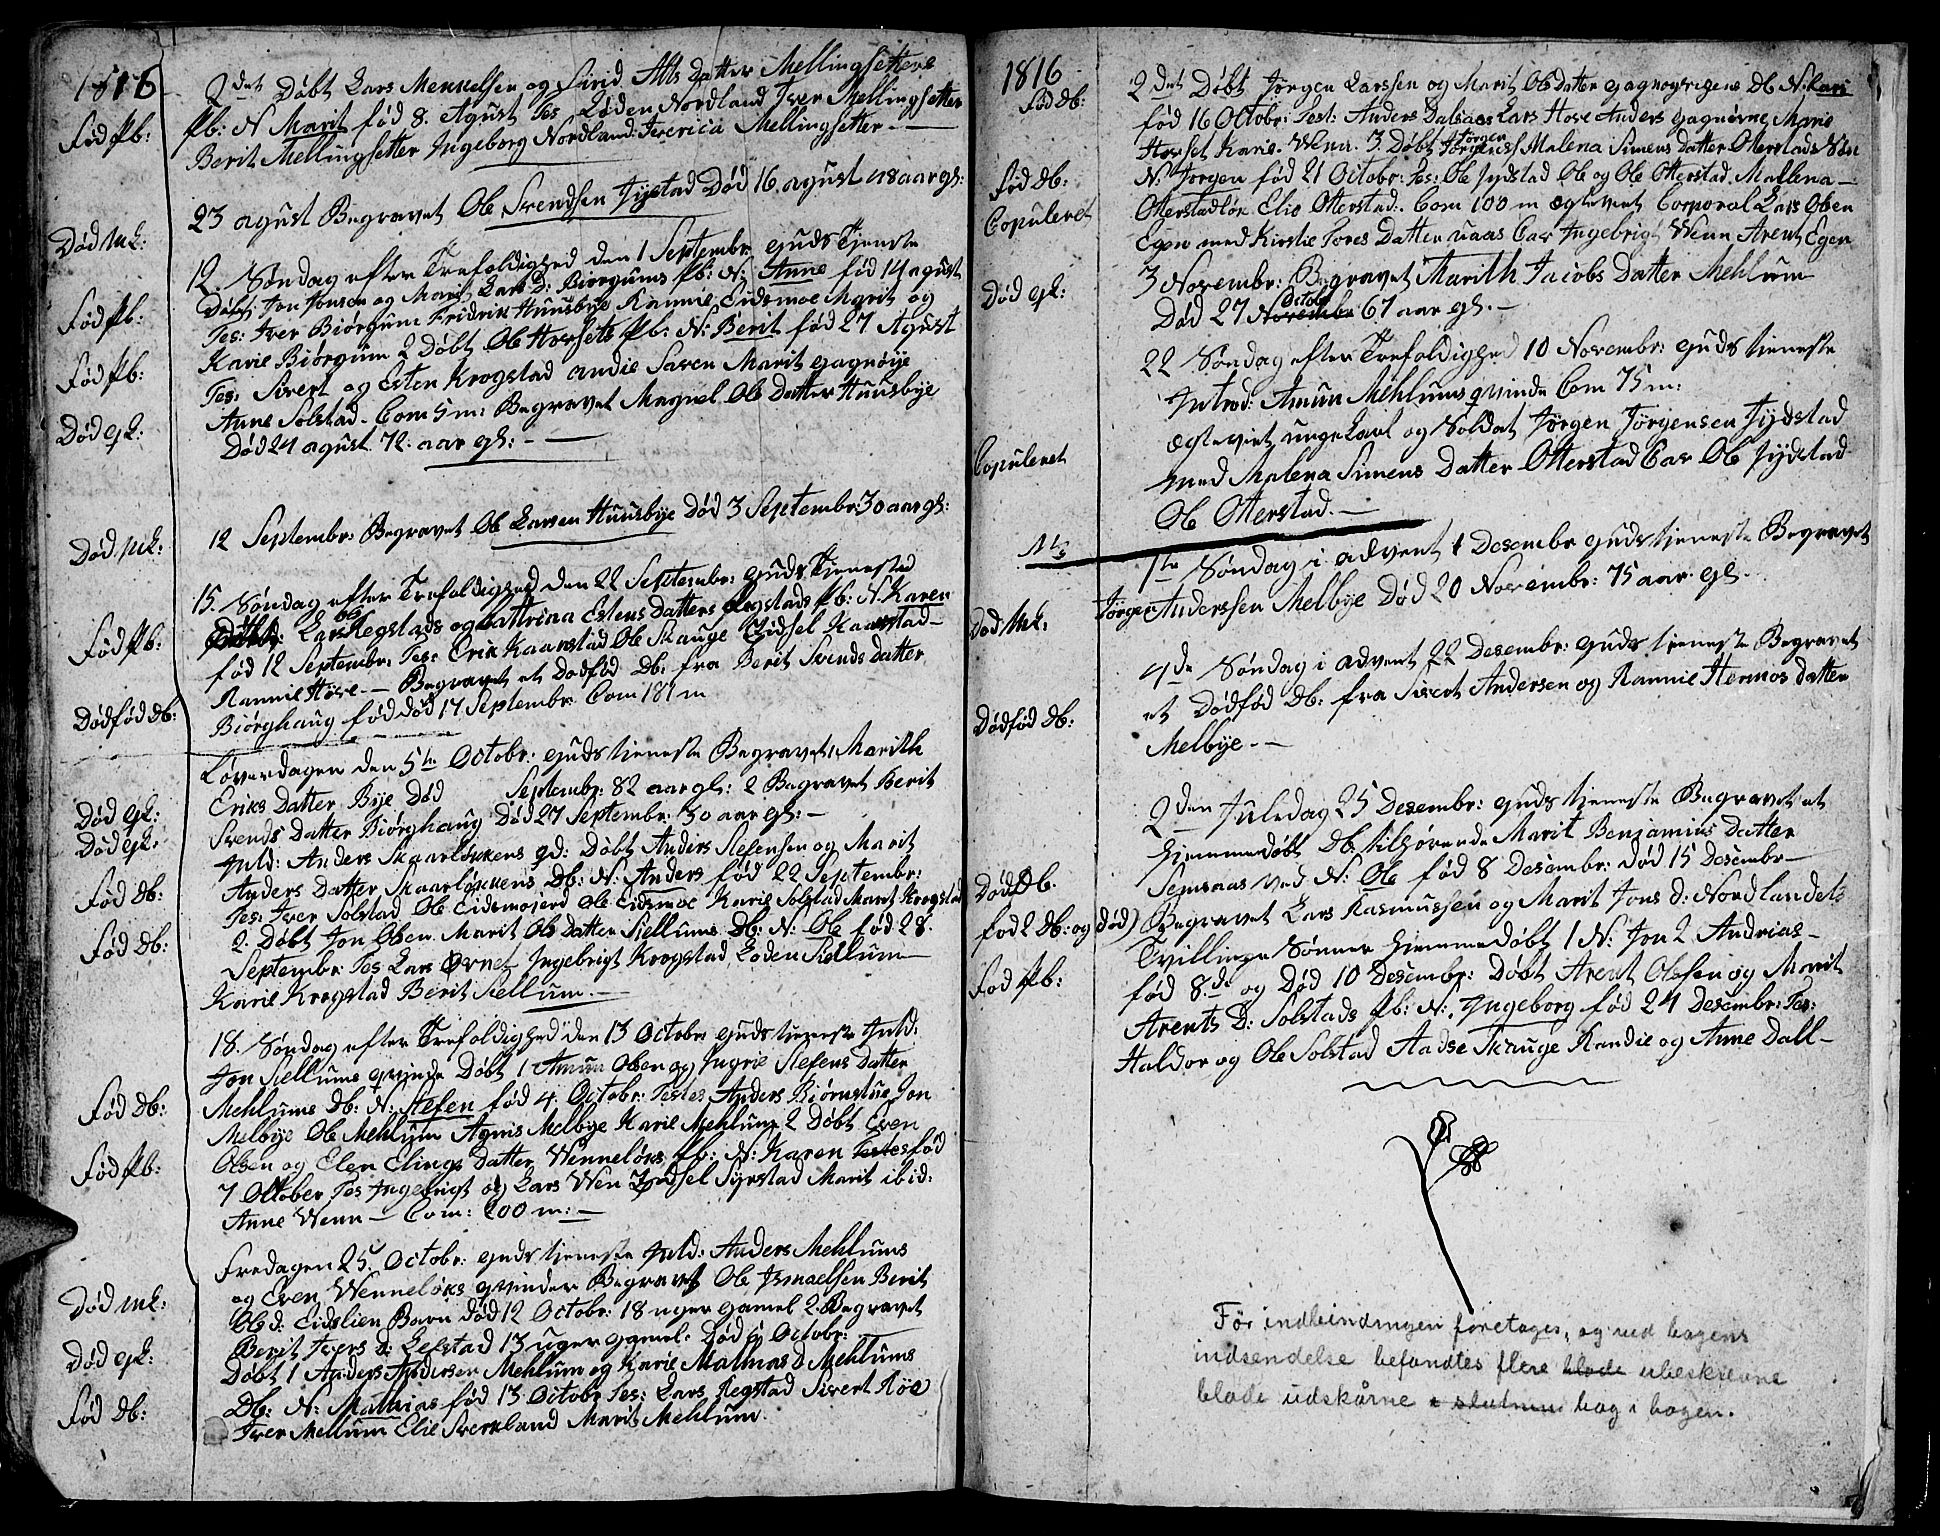 1816
2det Døbt Lars Menkelsen og Sirid Atts datter Mellingsetters
Fød Pb:
Pb: N Marit fød 8. Agust Tes Løden Nordland Iver Mellingsetter
Berit Mellingsetter Ingeborg Nordland: Fererica Mellingsetter. —
23 agust Begravet Ole Svendsen Jystad Død 16 agust 48 aar gl:
Død Mk:
12. Søndag efter Trefoldighed den 1 Septembr. guds Tjeneste
Døbt Jon Jonsen og Marit Lars D: Biørgums Pb: N: Anne fød 14 agust
Fød Pb:
Tes: Iver Biørgum Fridrik Huusbye Rannie Eidsmoe Marit og
Karie Biørgum 2 Døbt Ole Horsets Pb: N: Berit fød 27 Agust
Fød Pb:
Tes: Sivert og Esten Krogstad andie Saxen Marit gagnøye
Anne Solstad. Com 5 m: Begravet Magnel Ole Datter Huusbye
Død qk:
Død 24 agust 72. aar gl: - —
12 Septembr: Begravet Ole Larsen Huusbye Død 3 Septembr: 30 aar gl:
Død. Mk:
15. Søndag efter Trefoldighed den 22 Septembr: guds Tjenested
Døbt: Lars Regstads og Cattrina Estens Datters Regstads Pb: N. Karen
Fød Pb:
fød 12 Septembr: Tes: Erik Kaarstad Ole Skauge Zidsel Kaarstad —
Rannie Høve. — Begravet et Dødfød Db: fra Berit Svends Datter
Dødfød Db:
Biørghaug fød død 17 Septembr. Com 181 m
Løverdagen den 5te Octobr: guds tjeneste Begravet 1 Marith
Død qk:
Eriks Datter Bye Død Septembr: 82 aar gl: 2 Begravet Berit
Død qk:
Svends Datter Biørghaug Død 27 Septembr: 30 aar gl: —
Intd: Anders Skaarløkkens qd: Døbt Anders Stefensen og Marit
Fød Db:
Anders Datter Skaarløkkens Db: N: Anders fød 22 Septembr:
Tes: Iver Solstad Ole Eidsmojerd Ole Eidsmoe Karie Solstad Marit Krogstad
Fød Db:
2. Døbt Jon Olsen Marit Ole Datter Siellums Db: N: Ole fød 28.
Septembr Tes Lars Ørnet Ingebrigt Krogstad Loden Siellum
Karie Krogstad Berit Siellum. —
18. Søndag efter Trefoldighed den 13 Octobr guds tjeneste Intd.
Jon Siellums qvinde Døbt 1 Amun Olsen og Ingrie Stefens Datter
Fød Db:
Mehlums Db: N: Stefen fød 4. Octobr: Testes Anders Biørnstue Jon
Melbye Ole Mehlum Agnis Melbye Karie Mehlum 2 Døbt Even
Fød Pb:
Olsen og Elen Elings Datter Wenneløks Pb: N: Karen Testes fød
7 October Tes Ingebrigt og Lars Wen Zidsel Syrstad Marit ibid:
Anne Wenn — Com: 200 m: —
Fredagen 25. Octobr: guds tjeneste Intd: Anders Mehlums
og Even Wenneløks qvinder Begravet Ole Ismaelsen Berit
Død Mk:
Ole d: Eidslien Barn død 12 Octobr: 18 uger gamel 2. Begravet
Død qk:
Berit Ivers d: Lefstad 13 uger gamel. Død ig Octobr:
Døbt 1 Anders Andersen Mehlum og Karie Mathias D Mehlums
Fød Db:
Db: N: Mathias fød 13 Octobr Tes: Lars Regstad Sivert Røe
Iver Mellum Elie Sverkland Marit Mehlum.
1816
Fød Db:
2det Døbt Jørgen Larssen og Marit Ole Datter gagnøyrigens Db N: Lars
fød 16 Octobr: Test: Anders Dalsaas Lars Hove Anders gagnørne Marie
Horset Karie. Wenn. 3. Døbt Jørgens Malena Simens Datter Otterstads Søn
Jørgen
Fød Db:
N: Jørgen fød 21 Octobr: Tes: Ole Jydstad Ole og Ole Otterstad. Mallena —
Copuleret
Otterstadløk Elie Otterstad. Com 100 m ægteviet Corporal Lars Olsen
Egen med Kirstie Tores Datter uaas Cav Ingebrigt Wenn Arent Egen
Død qk:
3 Novembr: Begravet Marith Jacobs Datter Mehlum
Død 27 Novembr Octobr 67 aar gl. —
22 Søndag efter Trefoldighed 10 Novembr: guds tieneste
Introd: Amun Mehlums qvinde Com 75 m:
Copuleret
ægteviet unge Karl og Soldat Jørgen Jørgensen Jydstad
med Malena Simens Datter Otterstad Cav Ole Jydstad
Ole Otterstad. —
1ste Søndag i advent 1 Desembr guds tjeneste Begravet
Død Mk.
Jørgen Anderssen Melbye Død 20 Novembr: 75 aar. gl. -
4de Søndag i advent 22 Desembr: guds tjeneste Begravet
Dødfød Db:
et Dødfød Db: fra Sivert Andersen og Rannie Hermos datter
Melbye. —
2den Juledag 25 Desembr: guds tjeneste Begravet et
hjemmedøbt Db tilhørende Marit Benjamins Datter
Død Db.
Semsaas ved N: Ole fød 8 Desembr: død 15 Desembr —
fød 2 Db: og død)
Begravet Lars Rasmussen og Marit Jons d: Nordlandets
Tvillinge Sønner hjemmedøbt 1 N: Jon 2 Andrias —
Fød Pb:
fød 8.de og Død 10 Desembr: Døbt Arent Olssen og Marit
Arents D: Solstads Pb: N: Ingeborg fød 24 Desembr: Tes:
Haldor og Ole Solstad Aadse Skauge Randie og Anne Dall —
Før indbindingen foretages, og ved bogens
indsendelse befandtes flere blade ubeskrevne
blade udskårne i slutnin bag i bogen.